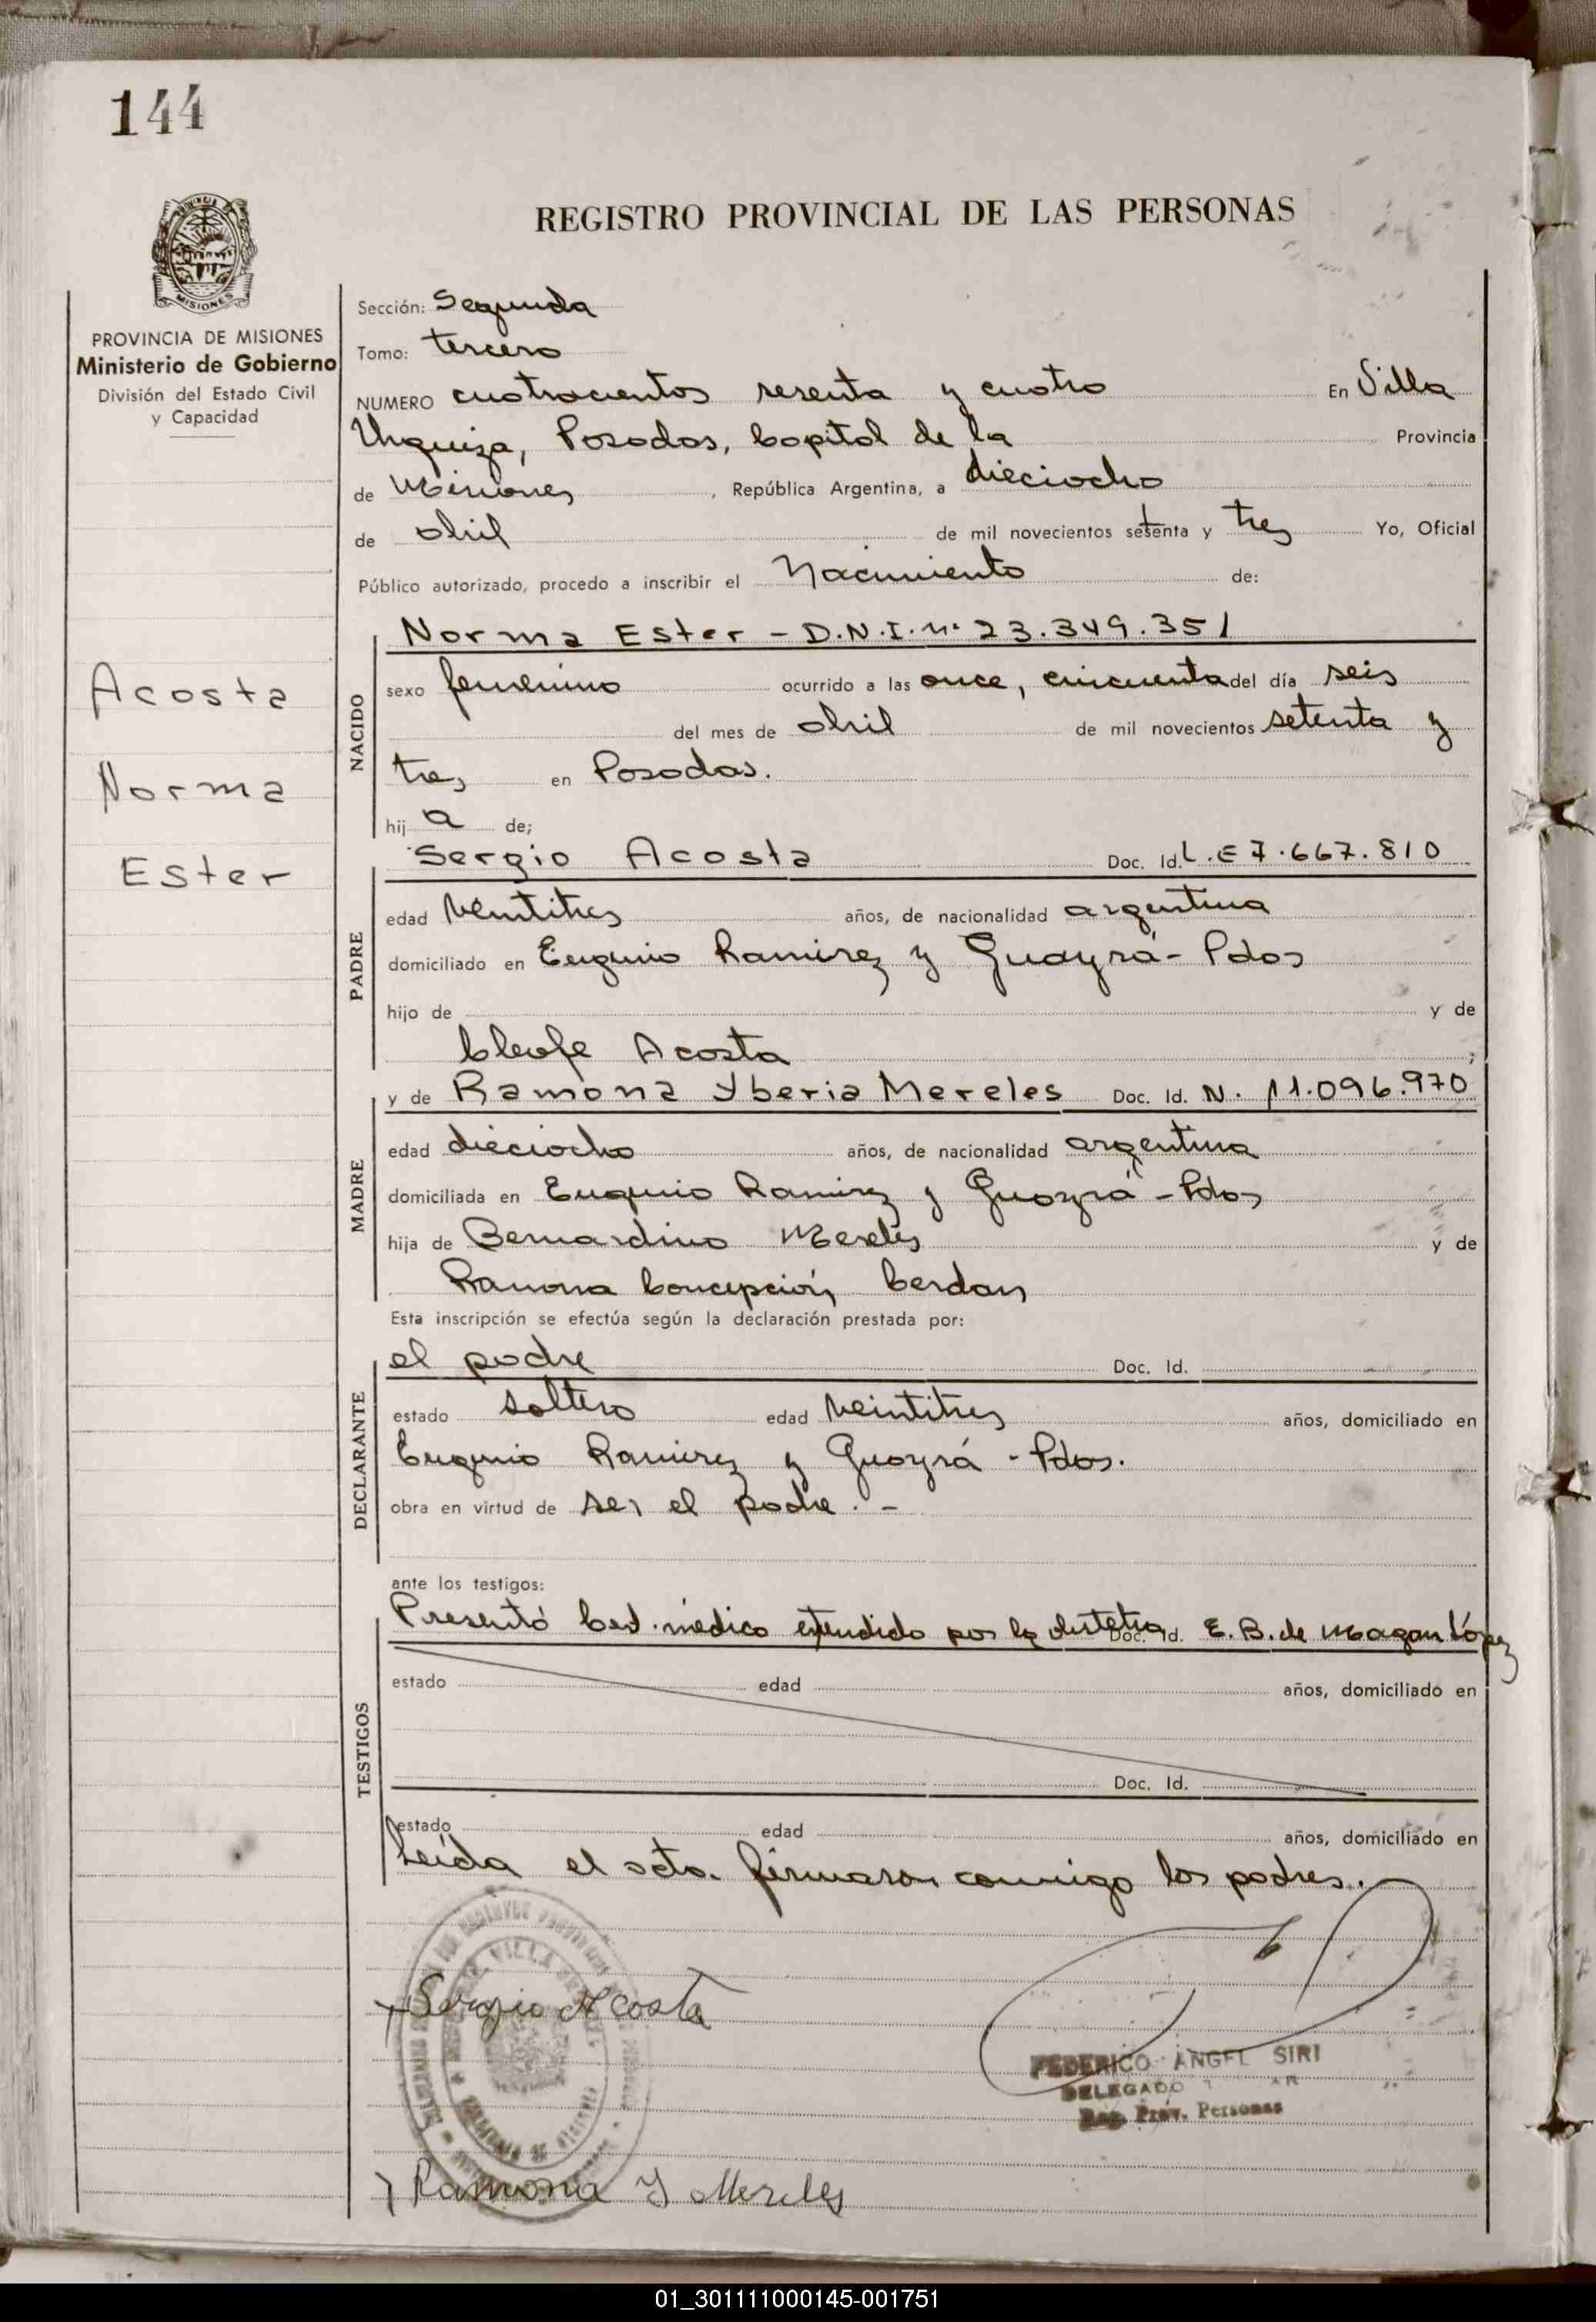 144
REGISTRO PROVINCIAL DE LAS PERSONAS
MISIONES
PROVINCIA DE MISIONES
Ministerio de Gobierno
División del Estado Civil
y Capacidad
Acosta
Norma
Ester
Sección: Segunda
Tomo: tercero
NUMERO cuatrocientos sesenta y cuatro En Villa
Urquiza, Posadas, Capital de la Provincia
de Misiones, República Argentina, a dieciocho
de abril de mil novecientos setenta y tres Yo, Oficial
Público autorizado, procedo a inscribir el Nacimiento de:
Norma Ester - D.N.I. Nº 23.349.351
NACIDO
sexo femenino ocurrido a las once, cincuenta del día seis
del mes de abril de mil novecientos setenta y
tres en Posadas.
hija de;
Sergio Acosta Doc. Id. L.E 7.667.810
PADRE
edad veintitres años, de nacionalidad argentina
domiciliado en Eugenio Ramirez y Guayrá - Pdas
hijo de y de
Cleofe Acosta ;
y de Ramona Yberia Mereles Doc. Id. N. 11.096.970
MADRE
edad dieciocho años, de nacionalidad argentina
domiciliada en Eugenio Ramirez y Guayrá - Pdas
hija de Bernardino Mereles y de
Ramona Concepción Cerdan
Esta inscripción se efectúa según la declaración prestada por:
el padre Doc. Id.
DECLARANTE
estado soltero edad veintitres años, domiciliado en
Eugenio Ramirez y Guayrá - Pdas.
obra en virtud de ser el padre. -
ante los testigos:
Presentó Cert. médico extendido por la obstetra Doc. Id. E. B. de Magan López
TESTIGOS
estado edad años, domiciliado en
Doc. Id.
estado edad años, domiciliado en
Leída el acta. firmaron conmigo los padres.
Sergio Acosta
FEDERICO ANGEL SIRI
DELEGADO
Reg. Prov. Personas
Ramona Y Mereles
01_301111000145-001751